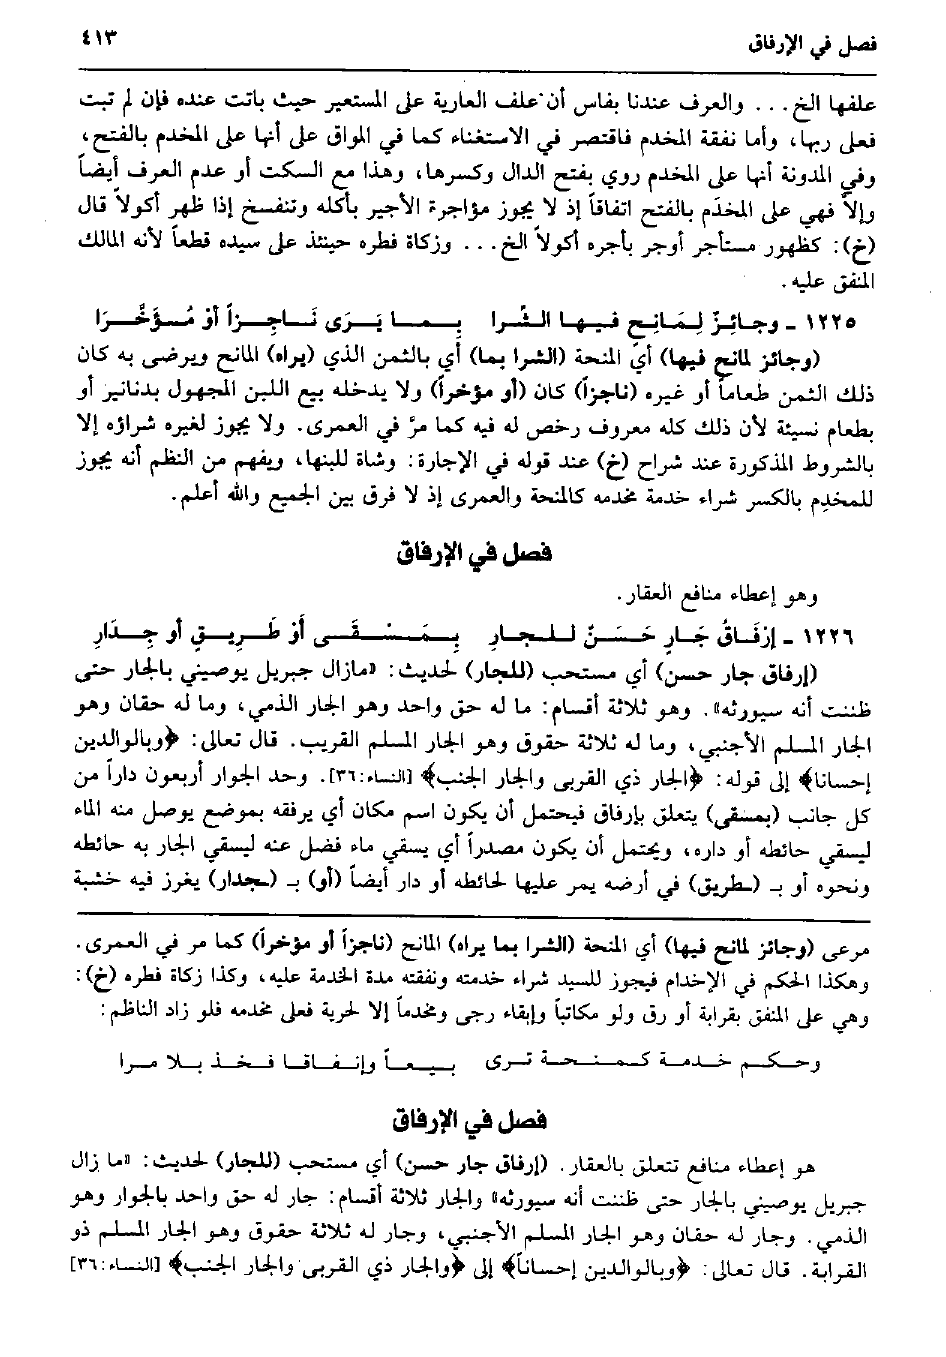 فصل في الإرفاق ٤١٣
علفها الخ. . . والعرف عندنا بفاس أن علف العارية على المستعير حيث باتت عنده فإن لم تبت
فعلى ربها، وأما نفقة المخدم فاقتصر في الاستغناء كما في المواق على أنها على المخدم بالفتح،
وفي المدونة أنها على المخدم روي بفتح الدال وكسرها، وهذا مع السكت أو عدم العرف أيضاً
وإلاَّ فهي على المخدَم بالفتح اتفاقاً إذ لا يجوز مؤاجرة الأجير بأكله وتنفسخ إذا ظهر أكولاً قال
(خ): كظهور مستأجر أوجر بأجره أكولاً الخ. . . وزكاة فطره حينئذ على سيده قطعاً لأنه المالك
المنفق عليه.
١٢٢٥ ـ وجائِزٌ لِمَانِحٍ فيها الشِّرا بِما يَرَى نَاجِزاً أوْ مُؤَخَّرَا
(وجائز لمانح فيها) أي المنحة (الشرا بما) أي بالثمن الذي (يراه) المانح ويرضى به كان
ذلك الثمن طعاماً أو غيره (ناجزاً) كان (أو مؤخراً) ولا يدخله بيع اللبن المجهول بدنانير أو
بطعام نسيئة لأن ذلك كله معروف رخص له فيه كما مرّ في العمرى. ولا يجوز لغيره شراؤه إلا
بالشروط المذكورة عند شراح (خ) عند قوله في الإجارة: وشاة للبنها، ويفهم من النظم أنه يجوز
للمخدِم بالكسر شراء خدمة مخدمه كالمنحة والعمرى إذ لا فرق بين الجميع والله أعلم.
فصل في الإرفاق
وهو إعطاء منافع العقار.
١٢٢٦ ـ إرْفَاقُ جَارٍ حَسَنٌ لِلجارِ بِمَسْقَى أوْ طَرِيقٍ أو جِدَارِ
(إرفاق جار حسن) أي مستحب (للجار) لحديث: «مازال جبريل يوصيني بالجار حتى
ظننت أنه سيورثه». وهو ثلاثة أقسام: ما له حق واحد وهو الجار الذمي، وما له حقان وهو
الجار المسلم الأجنبي، وما له ثلاثة حقوق وهو الجار المسلم القريب. قال تعالى: ﴿وبالوالدين
إحسانا﴾ إلى قوله: ﴿والجار ذي القربى والجار الجنب﴾ [النساء:٣٦]. وحد الجوار أربعون داراً من
كل جانب (بمسقى) يتعلق بإرفاق فيحتمل أن يكون اسم مكان أي يرفقه بموضع يوصل منه الماء
ليسقي حائطه أو داره، ويحتمل أن يكون مصدراً أي يسقي ماء فضل عنه ليسقي الجار به حائطه
ونحوه أو بـ (ـطريق) في أرضه يمر عليها لحائطه أو دار أيضاً (أو) بـ (ـجدار) يغرز فيه خشبة
مرعى (وجائز لمانح فيها) أي المنحة (الشرا بما يراه) المانح (ناجزاً أو مؤخراً) كما مر في العمرى.
وهكذا الحكم في الإخدام فيجوز للسيد شراء خدمته ونفقته مدة الخدمة عليه، وكذا زكاة فطره (خ):
وهي على المنفق بقرابة أو رق ولو مكاتباً وإبقاء رجى ومخدماً إلا لحرية فعلى مخدمه فلو زاد الناظم:
وحكم خدمة كمنحة ترى بيعاً وإنفاقا فخذ بلا مرا
فصل في الإرفاق
هو إعطاء منافع تتعلق بالعقار. (إرفاق جار حسن) أي مستحب (للجار) لحديث: «ما زال
جبريل يوصيني بالجار حتى ظننت أنه سيورثه» والجار ثلاثة أقسام: جار له حق واحد بالجوار وهو
الذمي. وجار له حقان وهو الجار المسلم الأجنبي، وجار له ثلاثة حقوق وهو الجار المسلم ذو
القرابة. قال تعالى: ﴿وبالوالدين إحساناً﴾ إلى ﴿والجار ذي القربى والجار الجنب﴾ [النساء:٣٦]